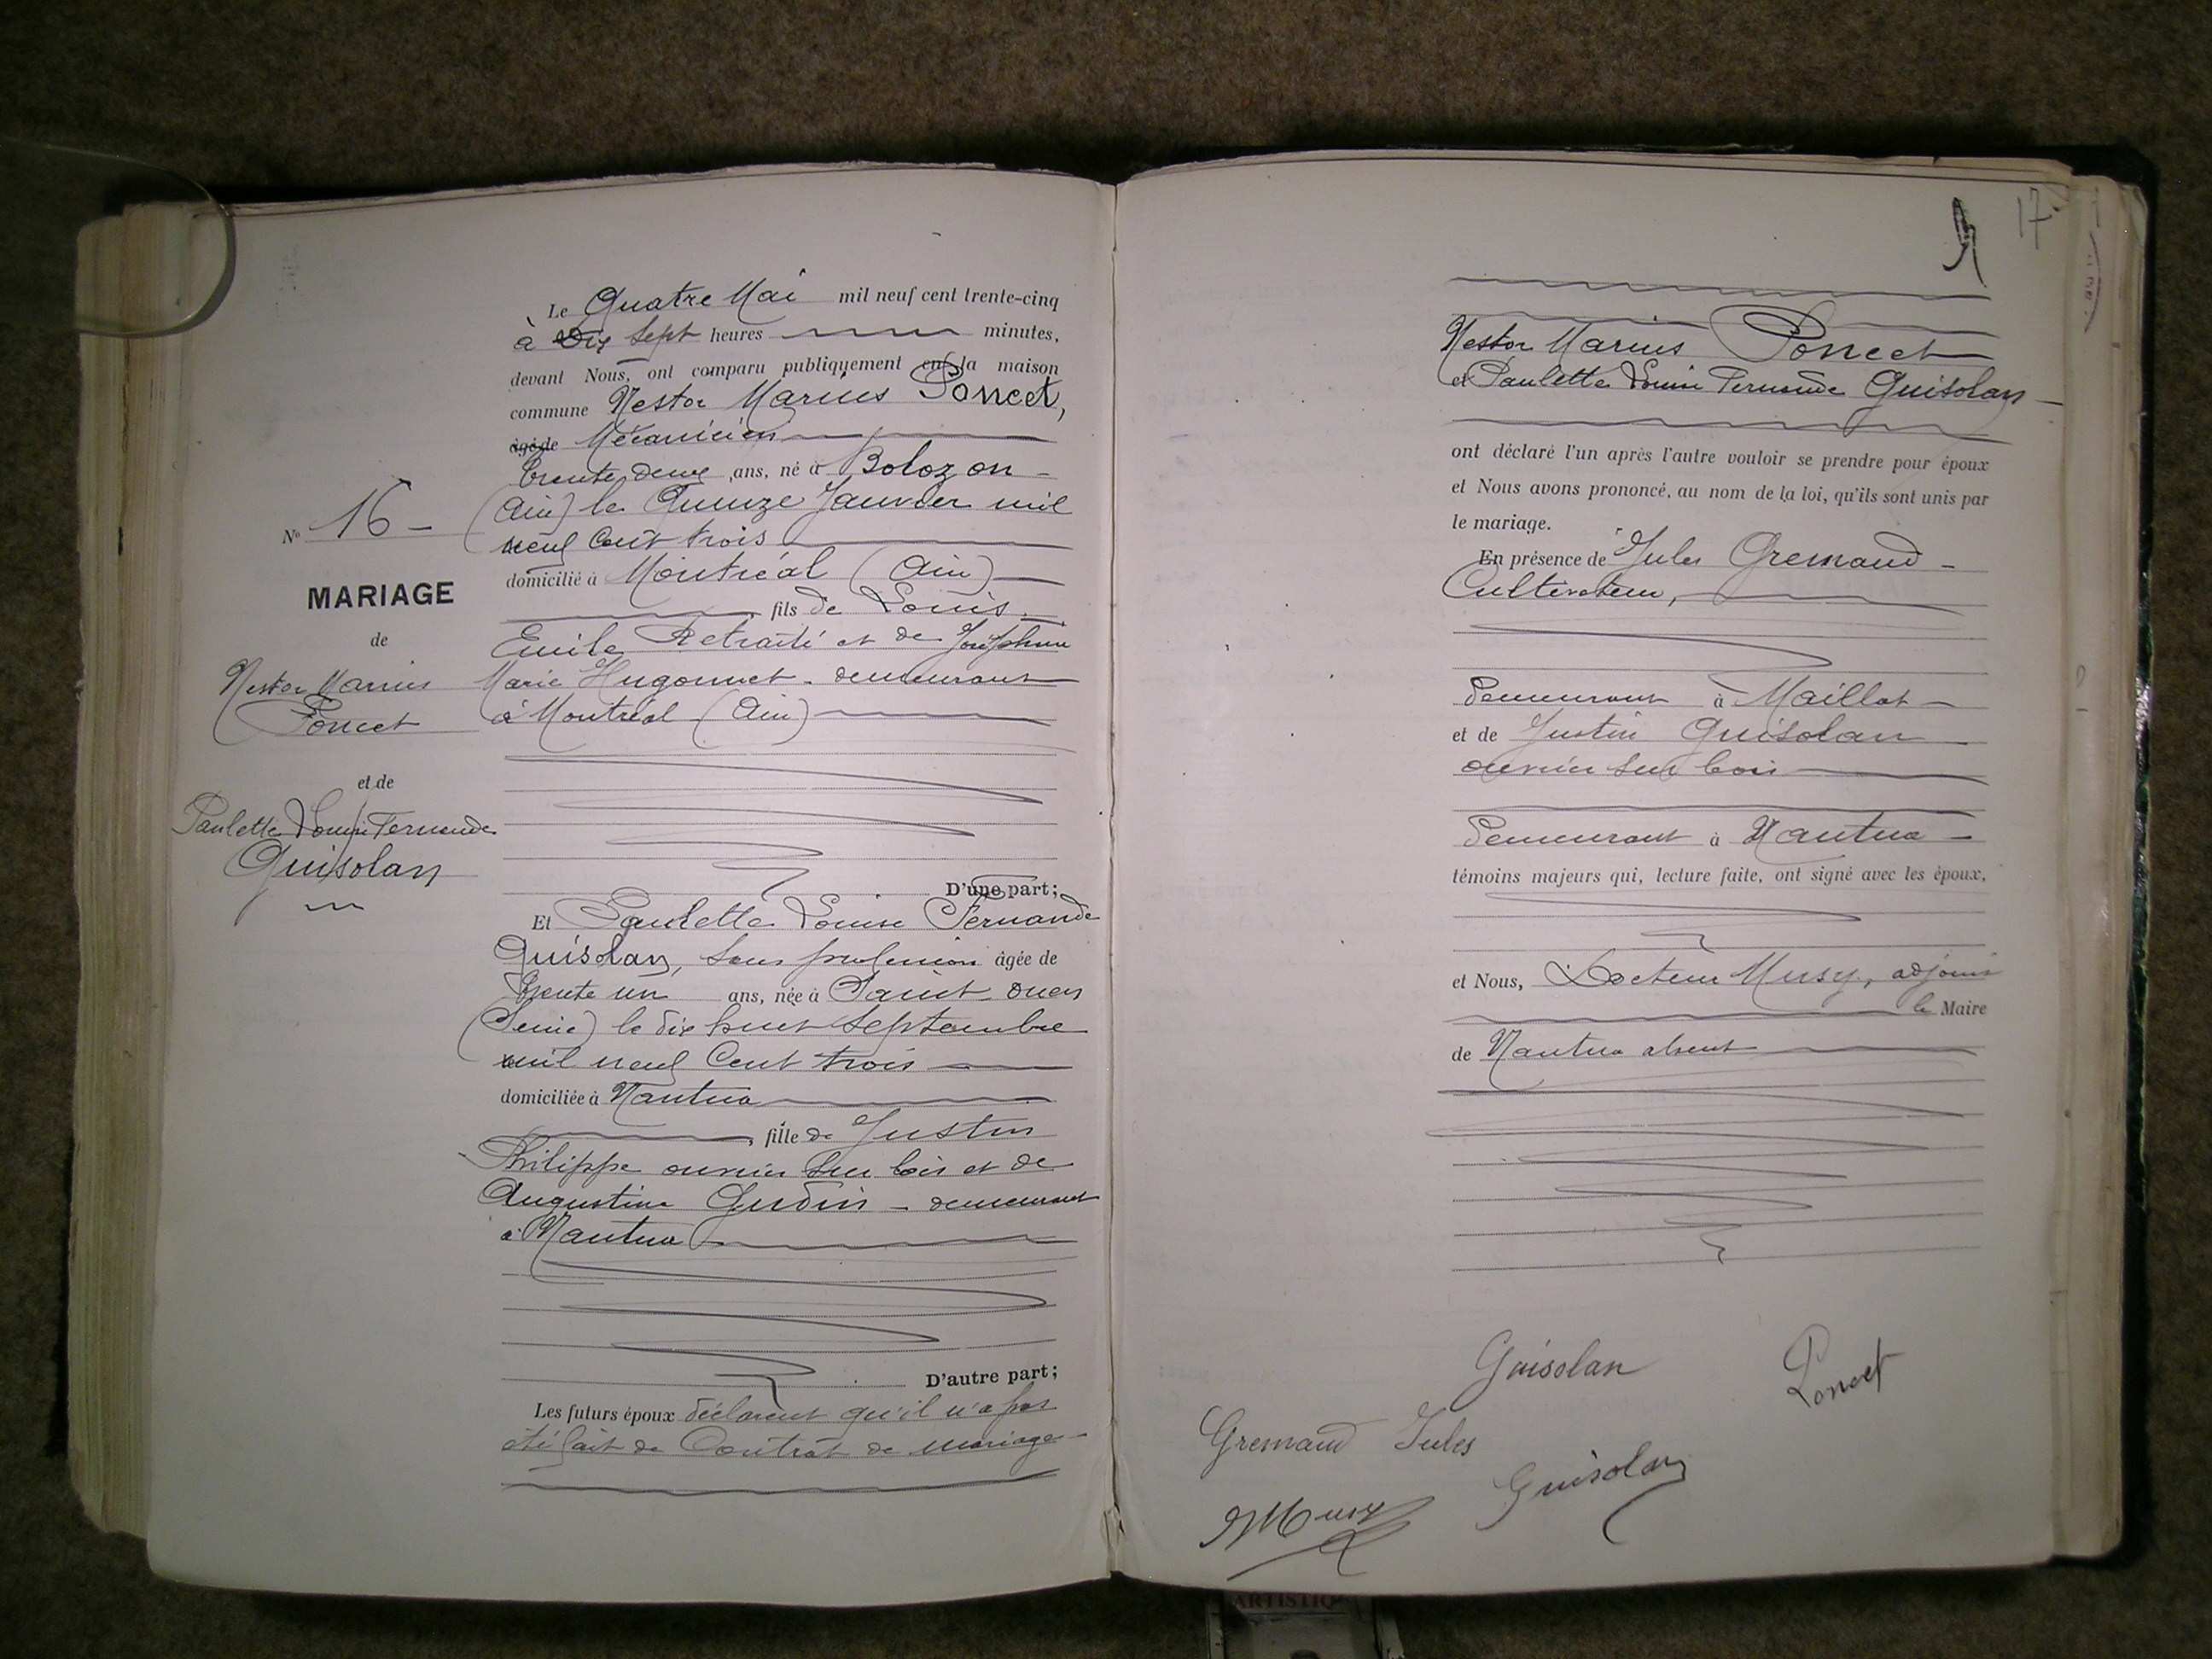 Le Quatre Mai mil neuf cent trente-cinq
à Dix sept heures minutes,
devant Nous, ont comparu publiquement en la maison
commune Nestor Marius Poncet,
âgé de Mécanicien
trente deux ans, né à Bolozon
(Ain) le Quinze Janvier mil
neuf Cent trois
domicilié à Montréal (Ain)
fils de Louis
Emile Retraité et de Joséphine
Marie Hugonnet - demeurant
à Montréal (Ain)
D'une part;
Et Paulette Louise Fernande
Guisolan, sans profession âgée de
trente un ans, née à Saint Ouen
(Seine) le dix huit Septembre
mil neuf Cent trois
domiciliée à Nantua
, fille de Justin
Philippe ouvrier sur bois et de
Augustine Gudin - demeurant
à Nantua
D'autre part;
Les futurs époux déclarent qu'il n'a pas
été fait de Contrat de mariage
No 16 -
MARIAGE
de
Nestor Marius
Poncet
et de
Paulette Louise Fernande
Guisolan
17
Nestor Marius Poncet
et Paulette Louise Fernande Guisolan
ont déclaré l'un après l'autre vouloir se prendre pour époux
et Nous avons prononcé, au nom de la loi, qu'ils sont unis par
le mariage.
En présence de Jules Gremaud -
Cultivateur,
demeurant à Maillat -
et de Justin Guisolan
ouvrier sur bois
demeurant à Nantua -
témoins majeurs qui, lecture faite, ont signé avec les époux,
et Nous, Docteur Musy, adjoint
le Maire
de Nantua absent
Guisolan Poncet
Gremaud Jules
Guisolan
Musy
ARTISTIQ